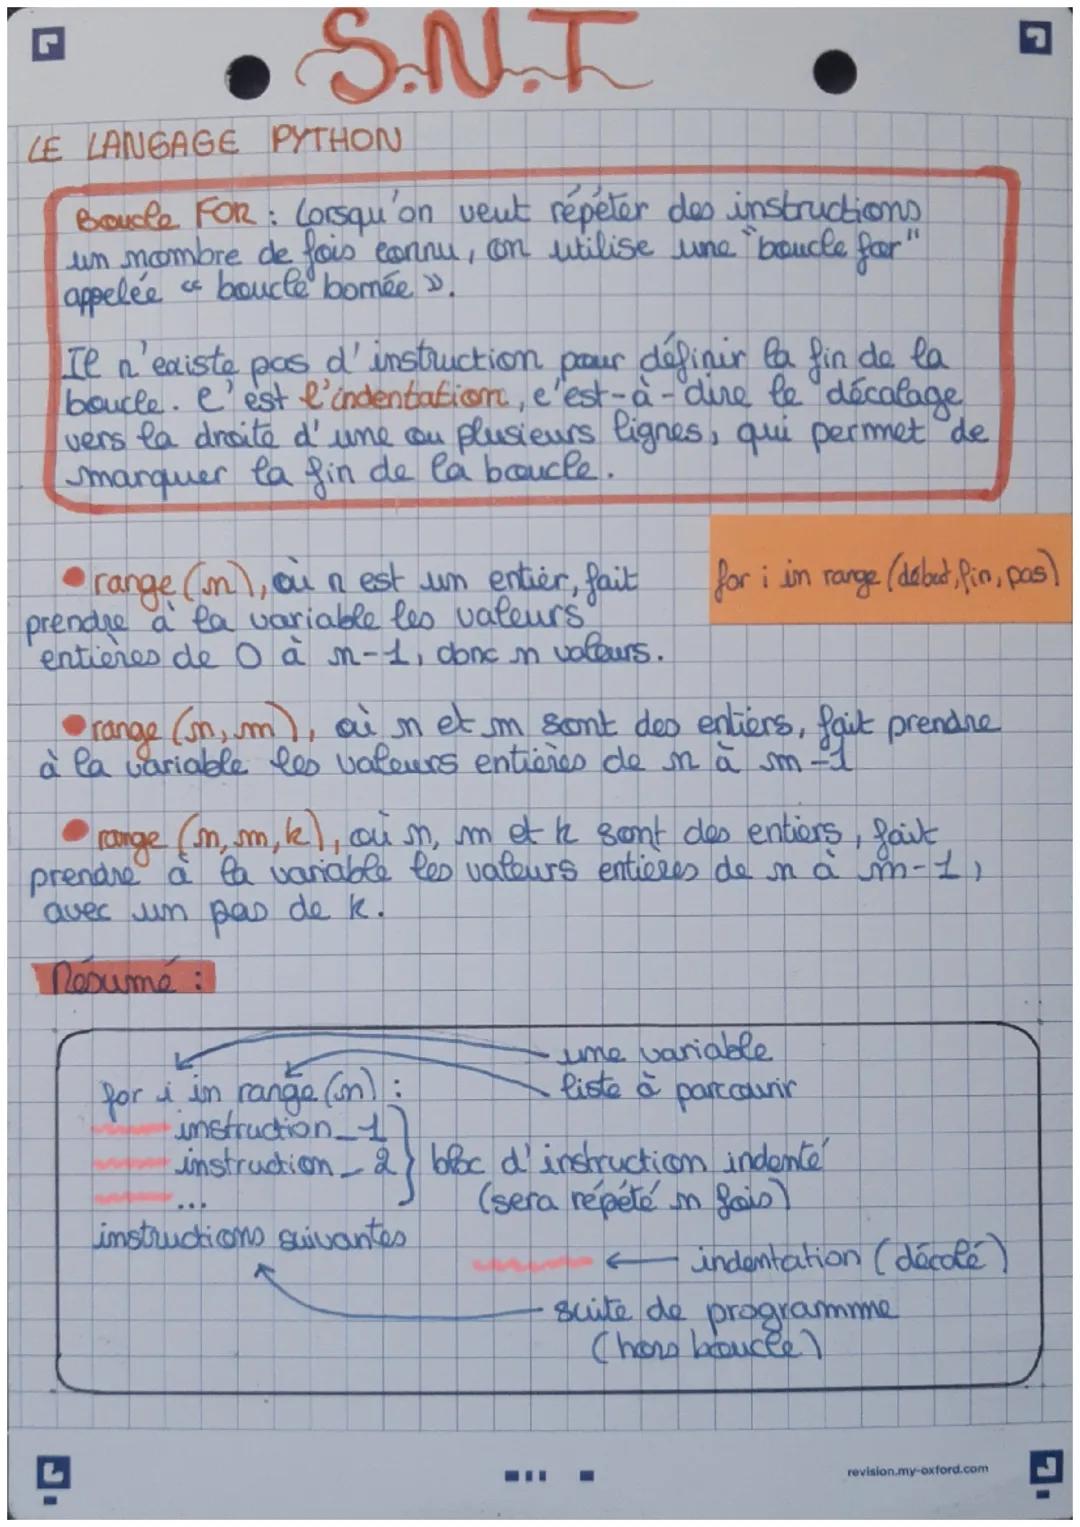 S.N.T
LE LANGAGE PYTHON
Boucle FOR : Lorsqu'on veut répéter des instructions
un nombre de fois connu, on utilise une "boucle for"
appelée « boucle bornée ».
Il n'existe pas d'instruction pour définir la fin de la
boucle. C'est l'indentation, c'est-à-dire le décalage
vers la droite d'une ou plusieurs lignes, qui permet de
marquer la fin de la boucle.
for i in range (début, fin, pas)
• range (n), où n est un entier, fait
prendre à la variable les valeurs
entières de 0 à n-1, donc n valeurs.
• range (n, m), où n et m sont des entiers, fait prendre
à la variable les valeurs entières de n à m-1
• range (n, m, k), où n, m et k sont des entiers, fait
prendre à la variable les valeurs entières de n à m-1,
avec un pas de k.
Résumé :
une variable
liste à parcourir
for i in range (n) :
instruction_1
instruction_2
...
bloc d'instruction indenté
(sera répété n fois)
instructions suivantes
indentation (décalé)
suite de programmme
(hors boucle)
revision.my-oxford.com